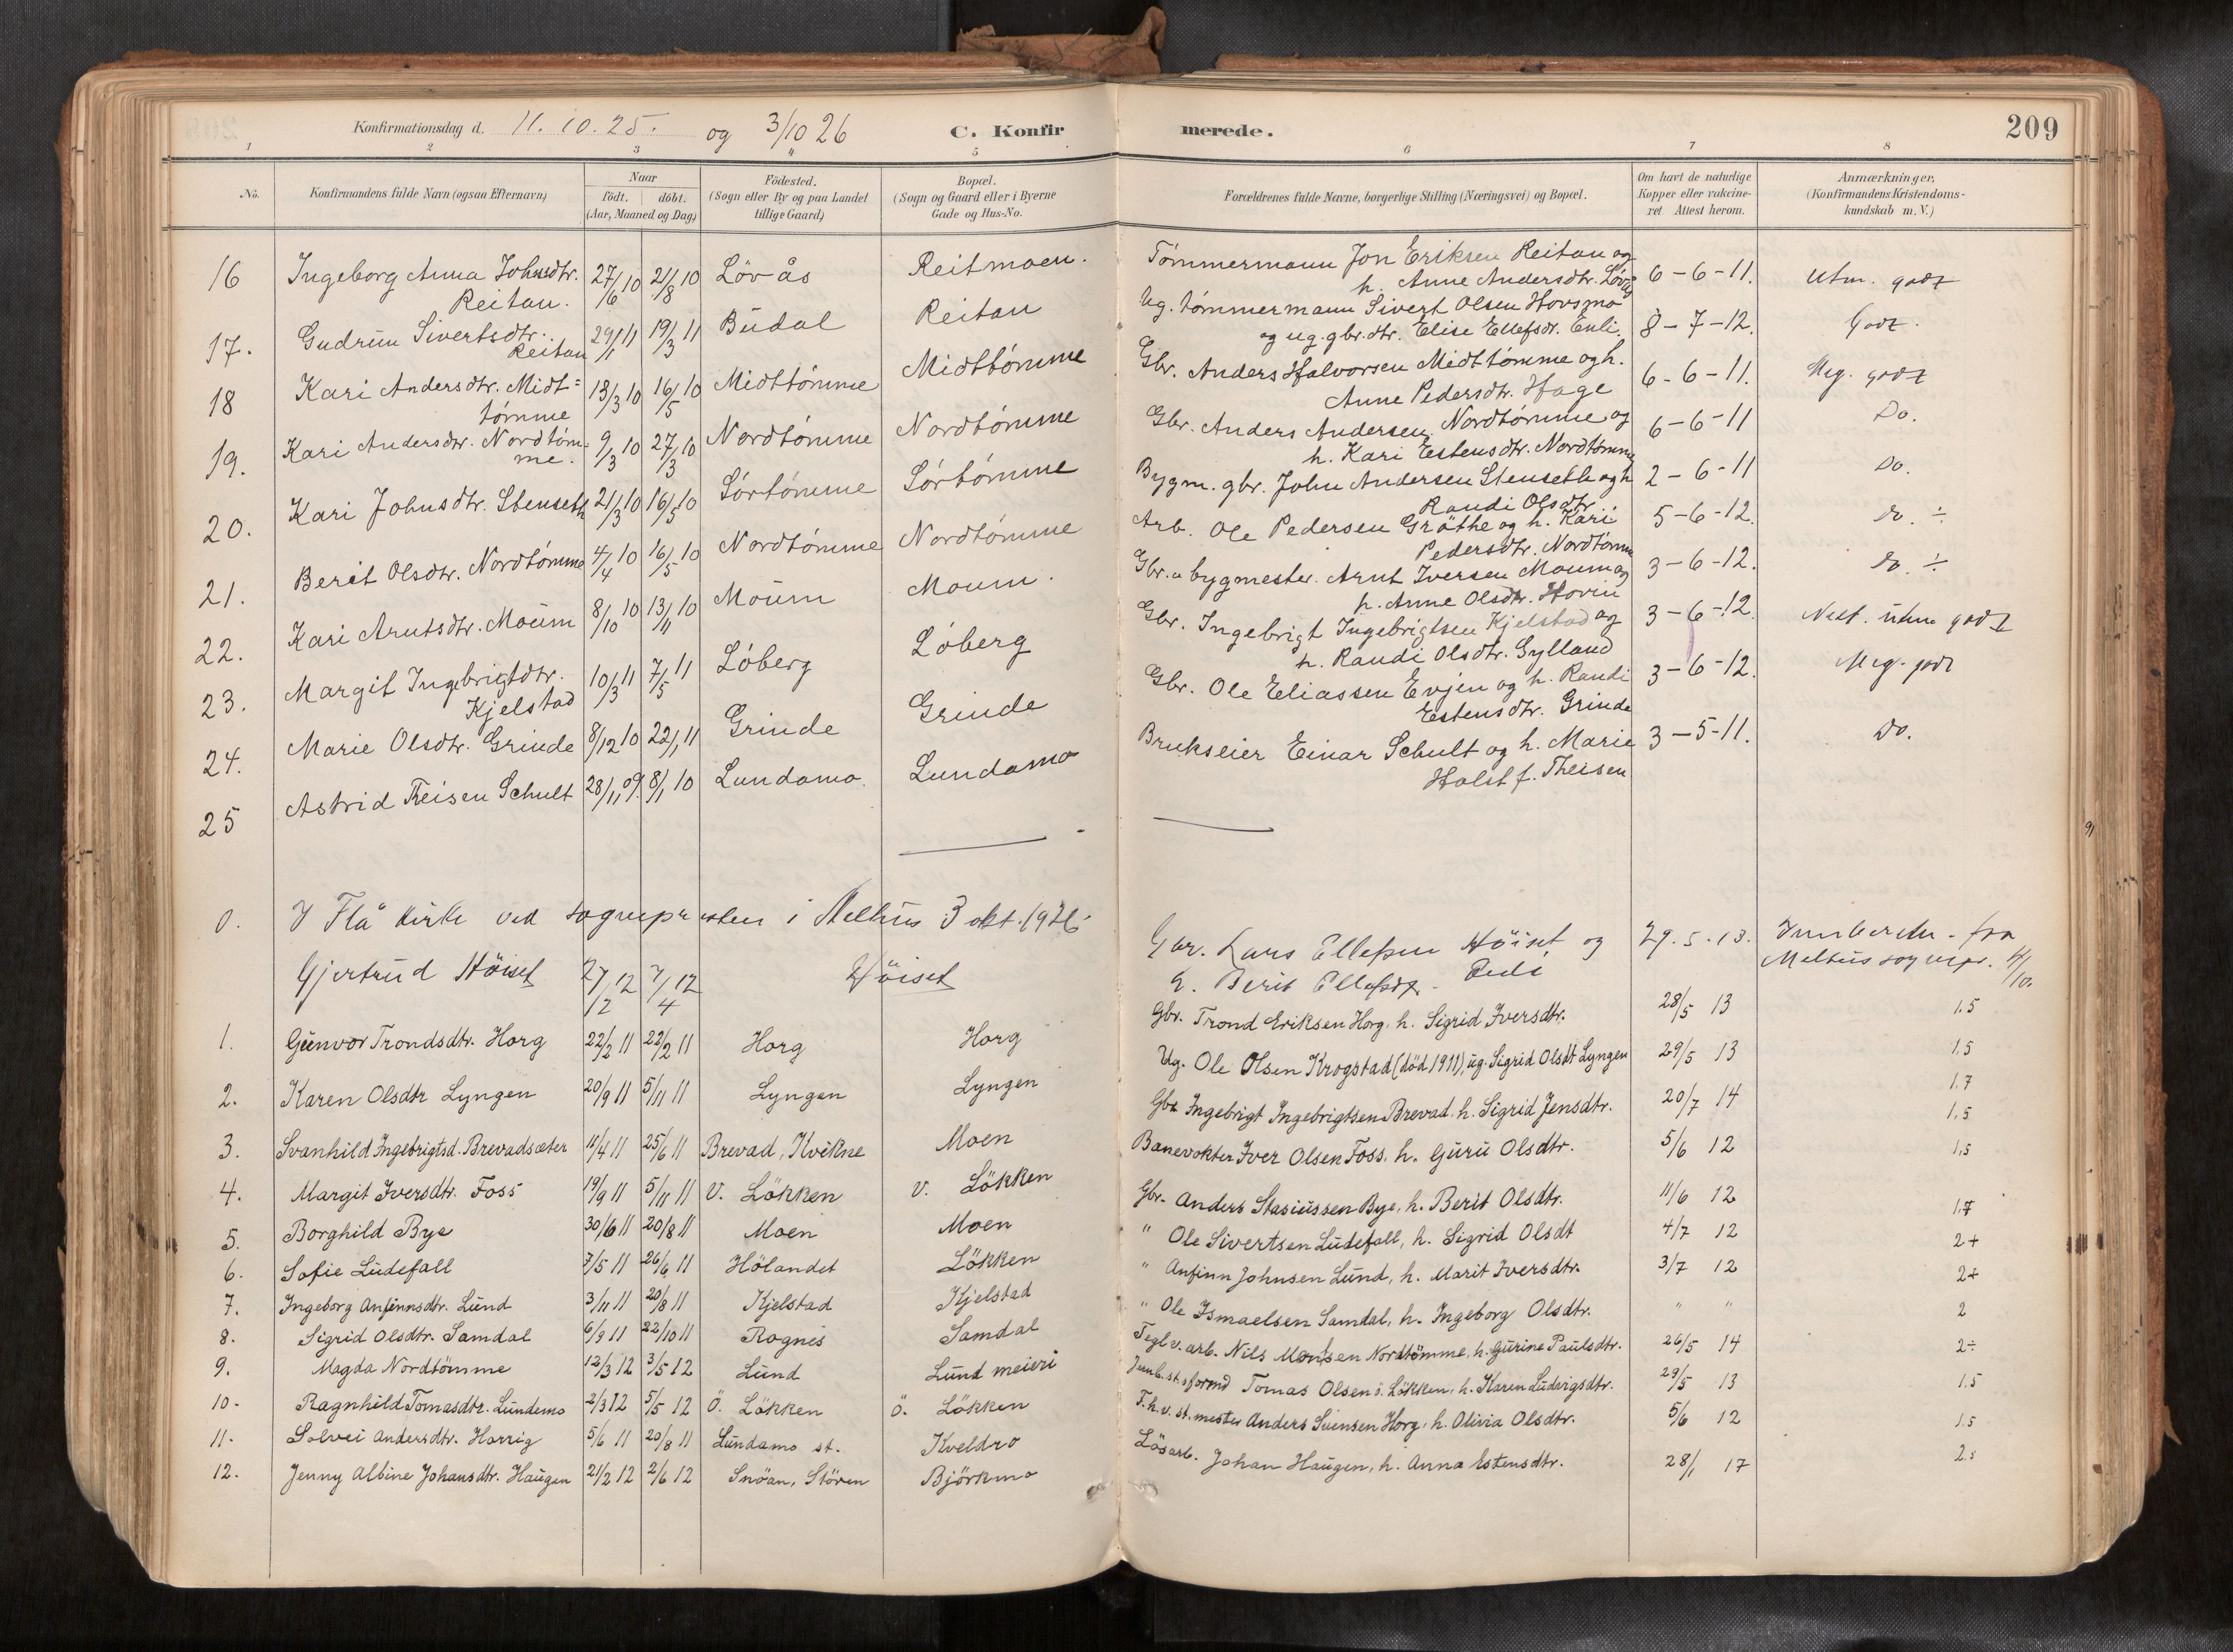 Konfirmationsdag d. 11. 10. 25. og 3/10 26 C. Konfirmerede. 209
1 2 3 4 5 6 7 8
No. Konfirmandens fulde Navn (ogsaa Efternavn) Naar födt. döbt. (Aar, Maaned og Dag) Födested. (Sogn eller By og paa Landet tillige Gaard) Bopæl. (Sogn og Gaard eller i Byerne Gade og Hus-No. Forældrenes fulde Navne, borgerlige Stilling (Næringsvei) og Bopæl. Om havt de naturlige Kopper eller vakcineret Attest herom. Anmærkninger. (Konfirmandens Kristendomskundskab m.V.)
16 Ingeborg Anna Johnsdtr. Reitan. 27/6 10 21/8 10 Lövås Reitmoen. Tømmermann Jon Eriksen Reitan og h. Anne Andersdtr. Løvås 6-6-11. Utm. godt
17. Gudrun Sivertsdtr. Reitan 29/1 11 19/3 11 Budal Reitan Ug. tømmermann Sivert Olsen Hovsmo og ug. gbr.dtr. Elise Ellefsdr. Enli. 8-7-12. Godt.
18 Kari Andersdtr. Midttømme 13/3 10 16/5 10 Midttømme Midttømme Gbr. Anders Halvorsen Midttømme og h. Anne Pedersdtr. Hage 6-6-11. Meg. godt
19. Kari Andersdtr. Nordtømme. 9/3 10 27/3 10 Nordtømme Nordtømme Gbr. Anders Andersen Nordtømme og h. Kari Estensdtr. Nordtømme 6-6-11 Do.
20. Kari Johnsdtr. Stenseth 21/3 10 16/5 10 Sørtømme Sørtømme Bygm. gbr. John Andersen Stenseth og h Randi Olsdtr. 2-6-11 Do.
21. Berit Olsdtr. Nordtømme 4/4 10 16/5 10 Nordtømme Nordtømme Arb. Ole Pedersen Gräthe og h. Kari Pedersdtr. Nordtømme 5-6-12. do. ÷
22. Kari Arntsdtr. Moum 8/10 10 13/11 10 Moum Moum. Gbr. u bygmester. Arnt Iversen Moum og h. Anne Olsdtr. Hovin 3-6-12. do. ÷
23. Margit Ingebrigtdtr. Kjelstad 10/3 11 7/5 11 Løberg Løberg Gbr. Ingebrigt Ingebrigtsen Kjelstad og h. Randi Olsdtr. Gylland 3-6-12. Nest. utm. godt
24. Marie Olsdtr. Grinde 8/12 10 22/1 11 Grinde Grinde Gbr. Ole Eliassen Evjen og h. Randi Estensdtr. Grinde 3-6-12. Meg. godt
25 Astrid Theisen Schult 28/11 09. 8/1 10 Lundamo. Lundamo Brukseier Einar Schult og h. Marie Holst f. Theisen 3-5-11. Do.
0. I Flå kirke ved sognepresten i Melhus 3 okt. 1926
Gjertrud Höiset 27/2 12 7/4 12 Höiset Gbr. Lars Ellefsen Höiset og h. Berit Ellefsdtr. 29.5.13. Innberetn. fra Melhus sognepr. 4/10.
1. Gunvor Trondsdtr. Horg 22/2 11 22/2 11 Horg Horg Gbr. Trond Eriksen Horg, h. Sigrid Iversdtr. 28/5 13 1.5
2. Karen Olsdtr Lyngen 20/9 11 5/11 11 Lyngen Lyngen Ug. Ole Olsen Krogstad (död 1911), ug. Sigrid Olsdt Lyngen 29/5 13 1.5
3. Svanhild Ingebrigtsd. Brevadsæter 11/4 11 25/6 11 Brevad, Kvikne Moen Gbr Ingebrigt Ingebrigtsen Brevad. h. Sigrid Jensdtr. 20/7 14 1.7
4. Margit Iversdtr. Foss 19/9 11 5/11 11 V. Lökken V. Lökken Banevokter Iver Olsen Foss, h. Guru Olsdtr. 5/6 12 1.5
5. Borghild Bye 30/6 11 20/8 11 Moen Moen Gbr. Anders Stasiussen Bye, h. Berit Olsdtr. 11/6 12 1.5
6. Sofie Ludefall 7/5 11 26/6 11 Hölandet Lökken " Ole Sivertsen Ludefall, h. Sigrid Olsdt 4/7 12 1.7
7. Ingeborg Anfinnsdtr. Lund 3/11 11 20/8 11 Kjelstad Kjelstad " Anfinn Johnsen Lund, h. Marit Iversdtr. 3/7 12 2+
8. Sigrid Olsdtr. Samdal 6/9 11 22/10 11 Rognes Samdal " Ole Ismaelsen Samdal, h. Ingeborg Olsdtr. " " 2+
9. Magda Nordtömme 12/3 12 3/5 12 Lund Lund meieri Teglv. arb. Nils Monsen Nordtömme, h. Gurine Paulsdtr. 26/5 14 2
10. Ragnhild Tomasdtr. Lundemo 2/3 12 5/5 12 Ö. Lökken ö. Lökken Junb.st.sformd Tomas Olsen ö. Lökken, h. Karen Ludvigsdtr. 29/5 13 2÷
11. Solvei Andersdtr. Horrig 5/6 11 20/8 11 Lundamo st. Kveldro T.h.v. st.mester Anders Suensen Horg, h. Olivia Olsdtr. 5/6 12 1.5
12. Jenny Albine Johansdtr. Haugen 21/2 12 2/6 12 Snöan, Stören Björkmo Lösarb. Johan Haugen, h. Anna Estensdtr. 28/1 17 1.5
2.5